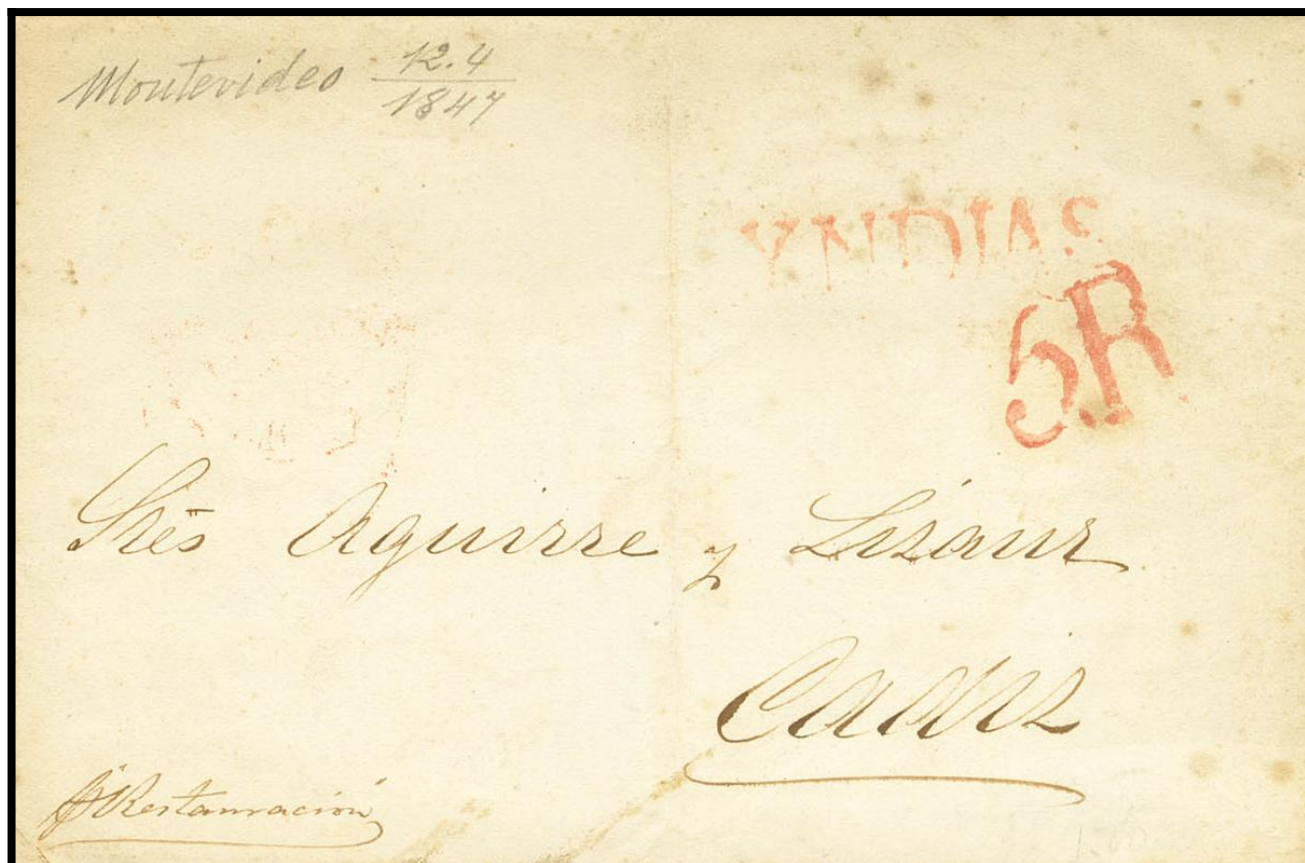 Montevideo 12.4
1847
YNDIAS
5.R
Sres Aguirre y Lizaur
Cadiz
Restauracion